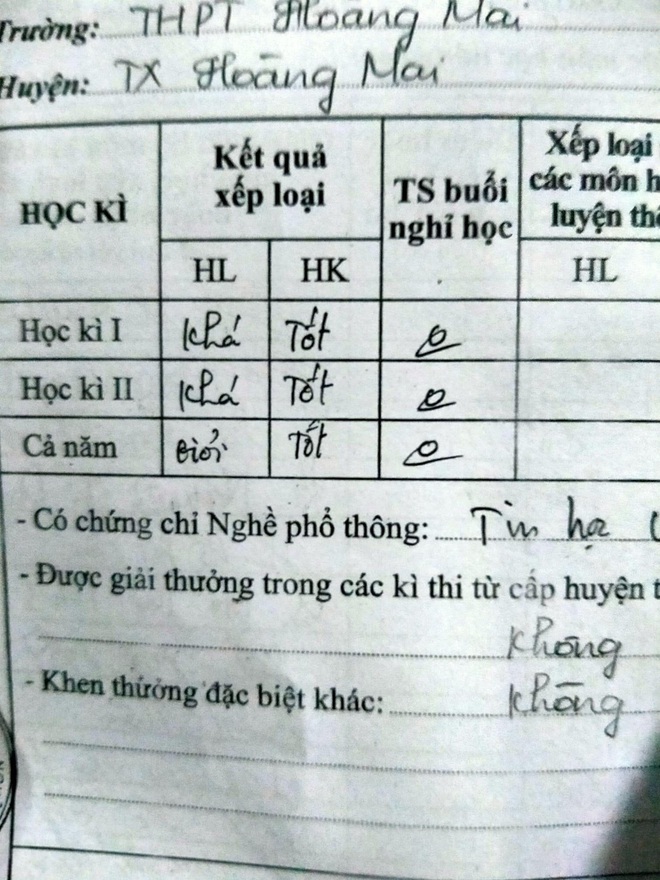 Trường: THPT Hoàng Mai
Huyện: TX Hoàng Mai
HỌC KÌ
Kết quả
xếp loại
TS buổi
nghỉ học
Xếp loại
các môn
luyện
HL HK HL
Học kì I Khá Tốt 0
Học kì II Khá Tốt 0
Cả năm Giỏi Tốt 0
- Có chứng chỉ Nghề phổ thông: Tin học
- Được giải thưởng trong các kì thi từ cấp huyện
Không
- Khen thưởng đặc biệt khác: Không